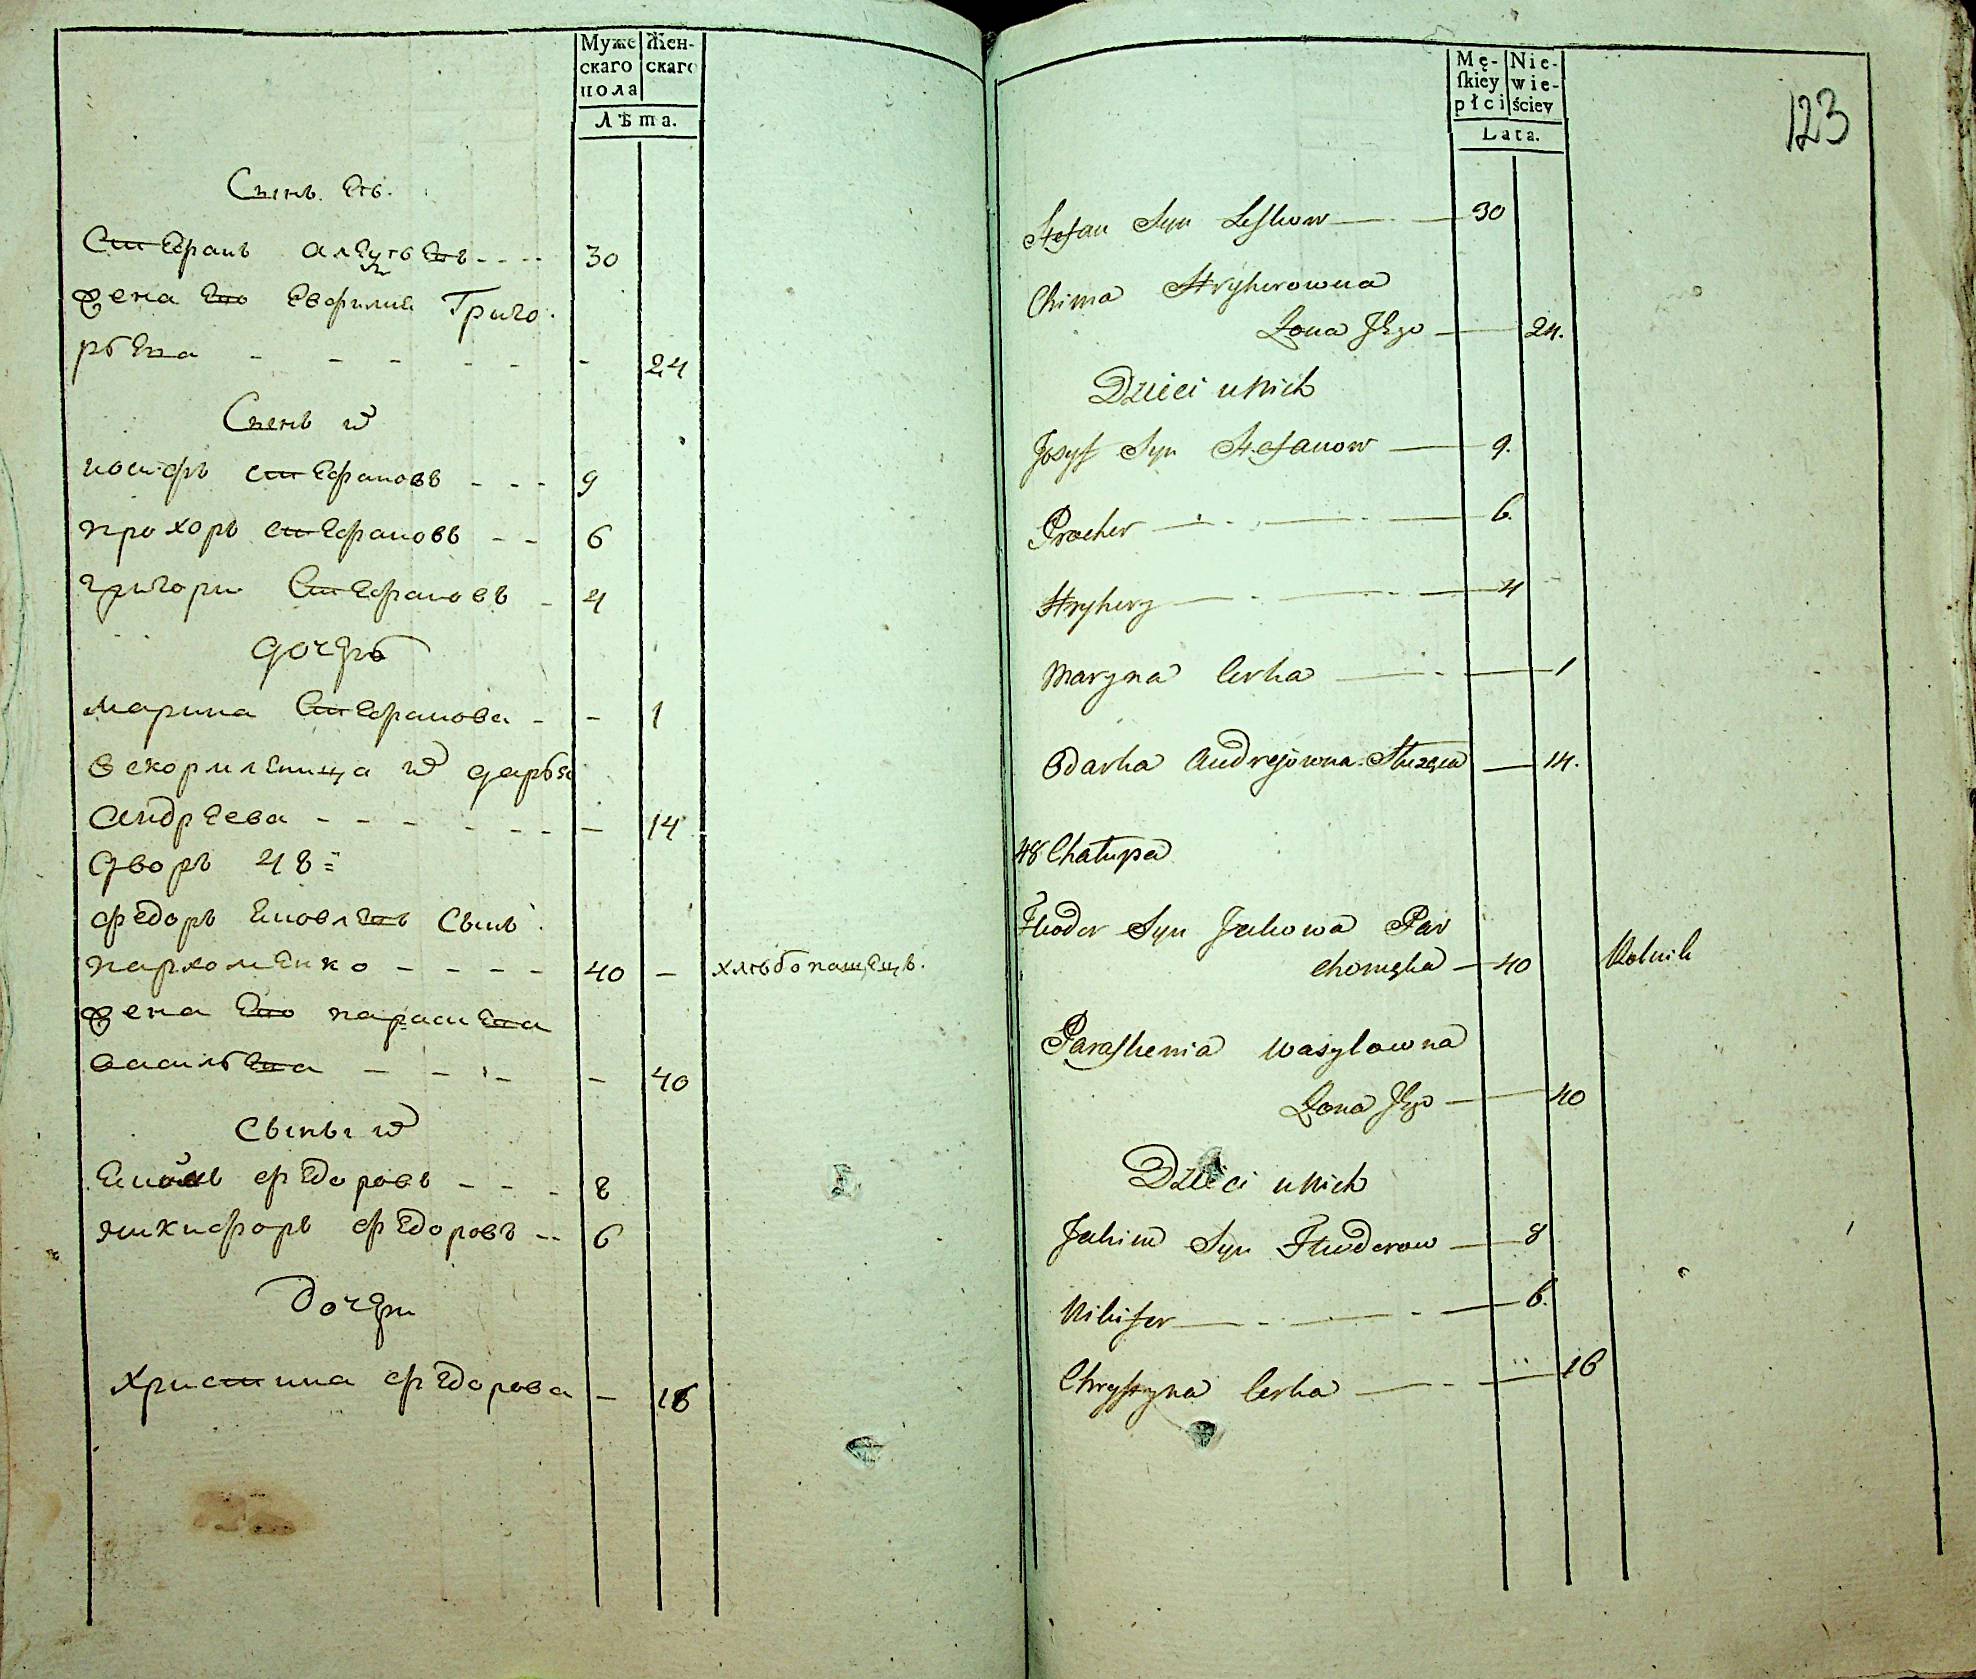 Муже скаго пола
Жен- скаго
Лѣта.
Сынъ Евъ.
Степанъ Алексѣевъ 30
Жена Его Евфимия Григо
рьева 24
Сынъ ихъ
Иосифъ Стефановъ 9
Прохоръ Стефановъ 6
Григори Стефановъ 4
дочерь
Марина Стефанова 1
Вскормленица ихъ дарья
Андреева 14
Дворъ 48
Федоръ Яковлевъ Сынъ
Пархоменко 40 — хлѣбопашецъ.
Жена Его Параскева
Васильева 40
Сыны ихъ
Якимъ Федоровъ 8
Никифоръ Федоровъ 6
Дочери
Христина Федорова 16
Mę- skiey płci
Nie- wie- ściey
Lata.
123
Stefan Syn Leskow 30
Chima Hryherowna
Żona Jego 24.
Dzieci u Nich
Josyf Syn Stefanow 9.
Procher 6.
Hryhery 4
Maryna Corka 1
Odarka Andrejowna Służąca 14.
48 Chałupa
Fhodor Syn Jakowa Par
chomęka 40 Rolnik
Paraskewia Wasylowna
Żona Jego 40
Dzieci u Nich
Jakim Syn Fhoderow 8
Nikifer 6.
Chrystyna Corka 16